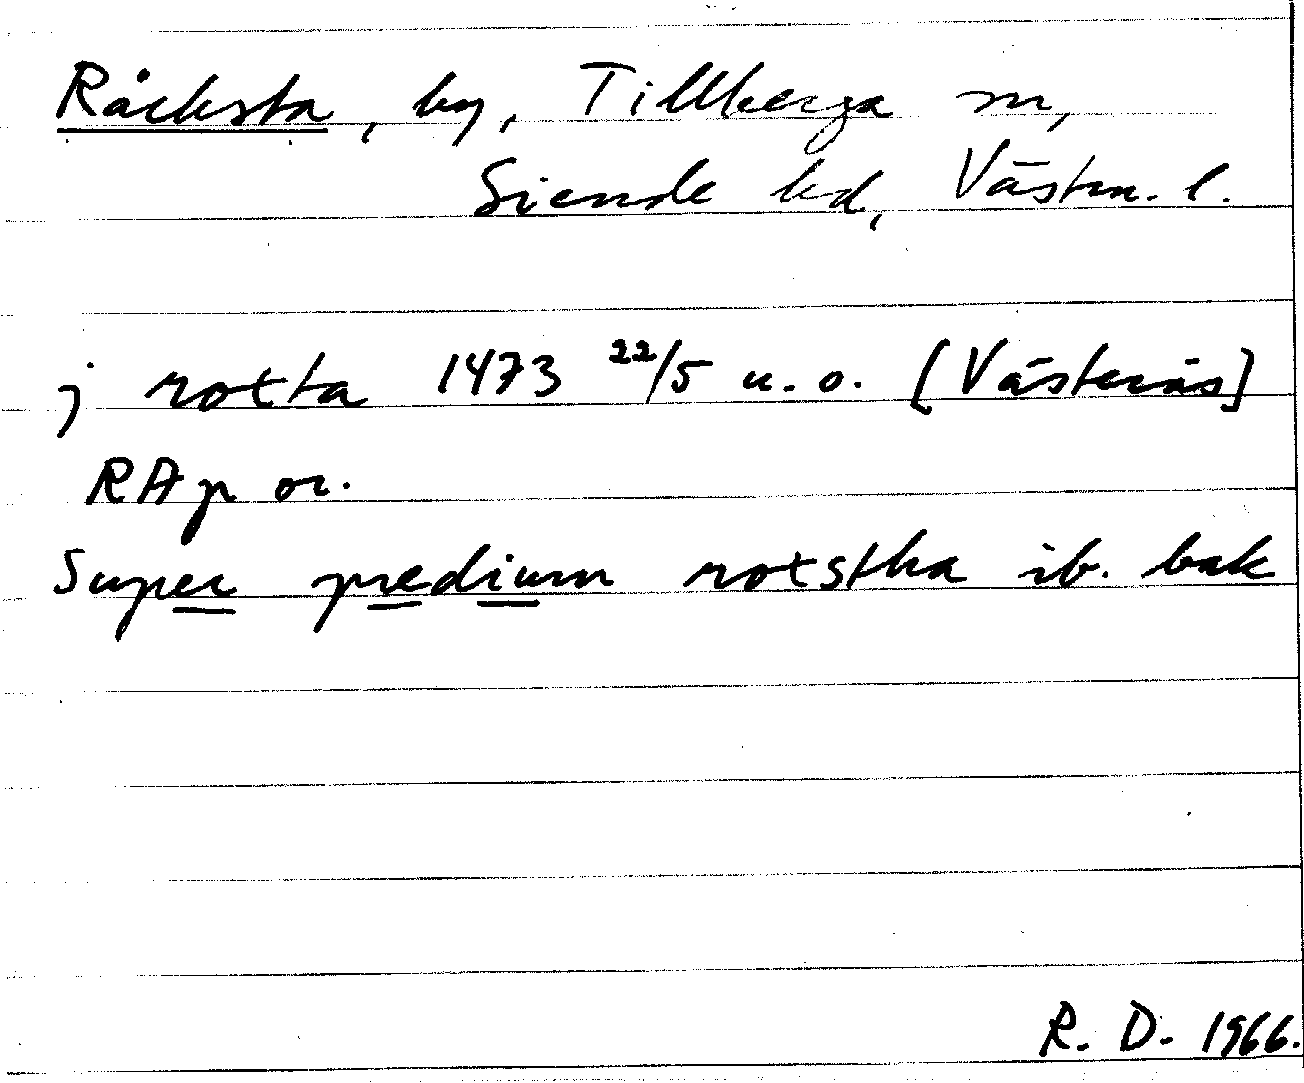 Råcksta, by, Tillberga sn,
Siende hd, Västm. l.
j rotta 1473 22/5 u. o. [Västerås]
RAp or.
Super predium rotstha ib. bak
R. D. 1966.